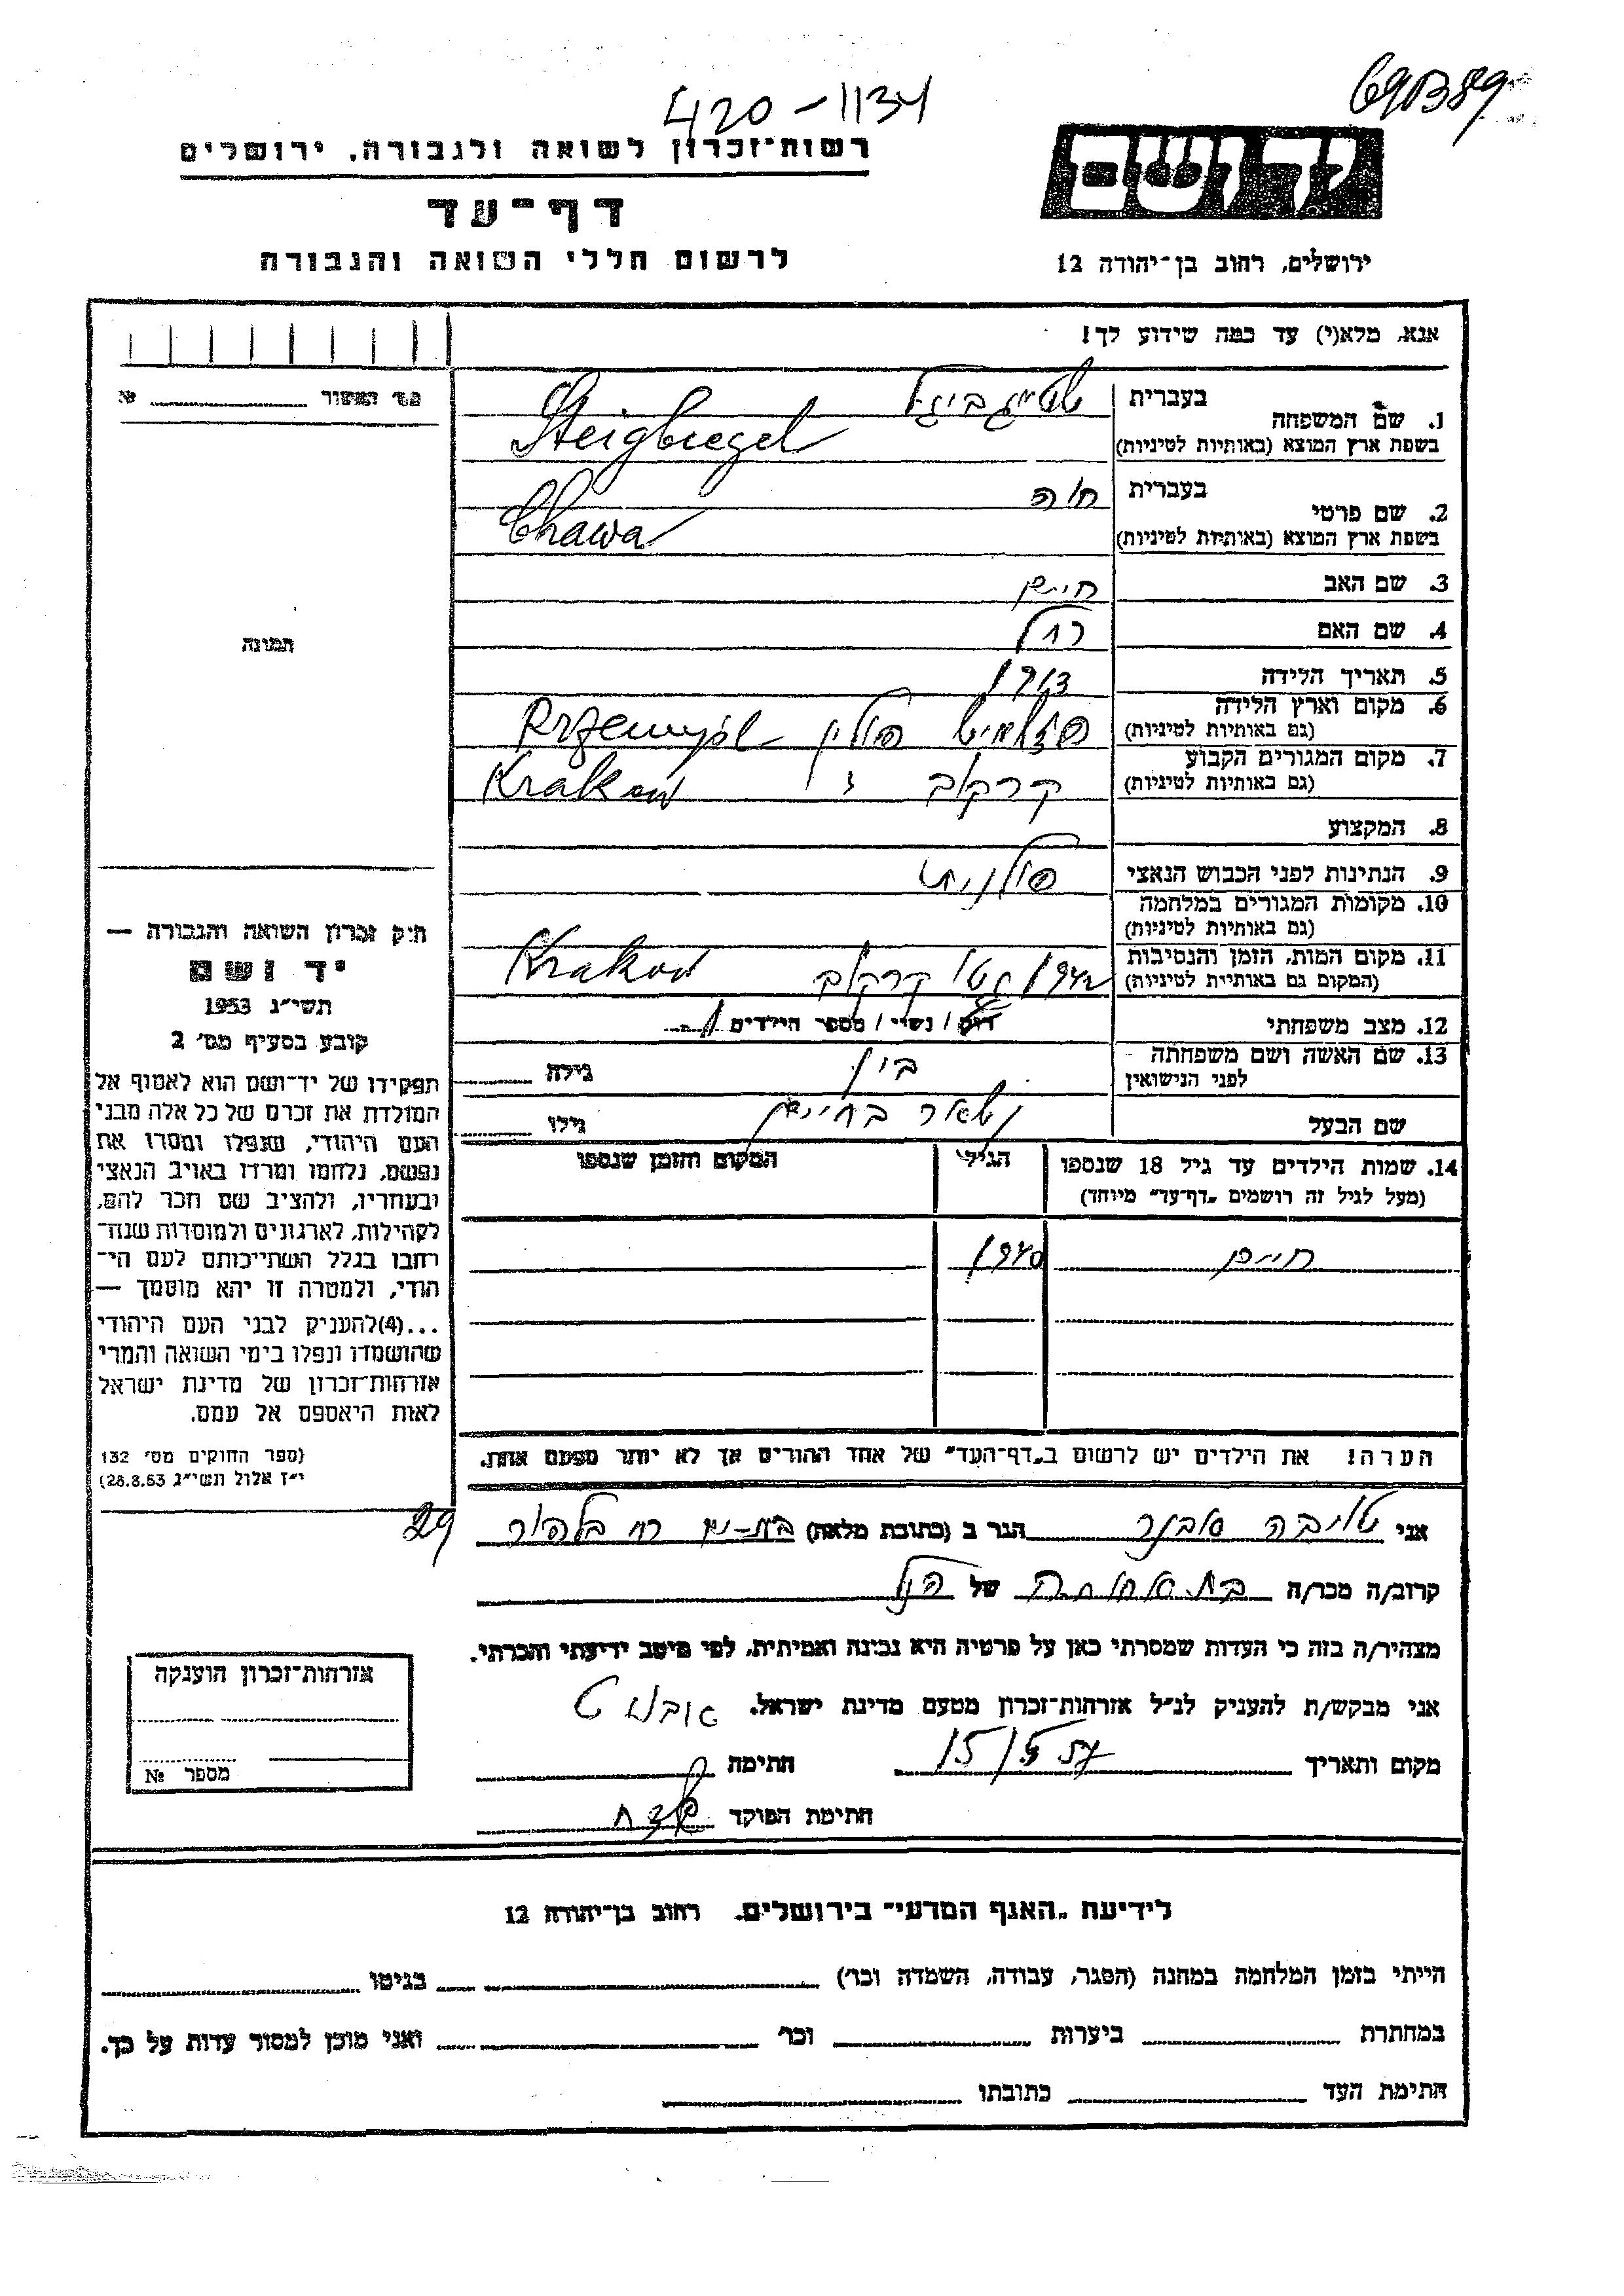 420-1134
69B89
רשות־זכרון לשואה ולגבורה, ירושלים
דף־עד
לרשום חללי השואה והגבורה
יד ושם
ירושלים, רחוב בן־יהודה 12
אנא, מלא(י) עד כמה שידוע לך!
1. שם המשפחה
בעברית שטייגביגל
בשפת ארץ המוצא (באותיות לטיניות) Steigbiegel
2. שם פרטי
בעברית חוה
בשפת ארץ המוצא (באותיות לטיניות) Chawa
3. שם האב חיים
4. שם האם רחל
5. תאריך הלידה
6. מקום וארץ הלידה
(גם באותיות לטיניות) פולין Przemyśl
7. מקום המגורים הקבוע
(גם באותיות לטיניות) קרקוב Krakow
8. המקצוע
9. הנתינות לפני הכבוש הנאצי פולנית
10. מקומות המגורים במלחמה
(גם באותיות לטיניות)
11. מקום המות, הזמן והנסיבות
(המקום גם באותיות לטיניות) 1942 גטו קרקוב Krakow
12. מצב משפחתי רוק / נשוי / מספר הילדים 1
13. שם האשה ושם משפחתה
לפני הנישואין גילה
שם הבעל גילו
14. שמות הילדים עד גיל 18 שנספו
(מעל לגיל זה רושמים „דף־עד" מיוחד)
הגיל
המקום והזמן שנספו
חיים 1940
הערה! את הילדים יש לרשום ב„דף־העד" של אחד ההורים אך לא יותר מפעם אחת.
מס' האישור №
תמונה
חוק זכרון השואה והגבורה —
יד ושם
תשי"ג 1953
קובע בסעיף מס' 2
תפקידו של יד־ושם הוא לאסוף אל
המולדת את זכרם של כל אלה מבני
העם היהודי, שנפלו ומסרו את
נפשם, נלחמו ומרדו באויב הנאצי
ובעוזריו, ולהציב שם וזכר להם,
לקהילות, לארגונים ולמוסדות שנח־
רבו בגלל השתייכותם לעם הי־
הודי, ולמטרה זו יהא מוסמך —
...(4) להעניק לבני העם היהודי
שהושמדו ונפלו בימי השואה והמרי
אזרחות־זכרון של מדינת ישראל
לאות היאספם אל עמם.
(ספר החוקים מס' 132
י"ז אלול תשי"ג 28.8.53)
אני טויבה הגר ב (כתובת מלאה) בת־ים רח בלפור 29
קרוב/ה מכר/ה של הנ"ל
מצהיר/ה בזה כי העדות שמסרתי כאן על פרטיה היא נכונה ואמיתית, לפי מיטב ידיעתי והכרתי.
אני מבקש/ת להעניק לנ"ל אזרחות־זכרון מטעם מדינת ישראל.
מקום ותאריך 15/5 57 חתימה
חתימת הפוקד
אזרחות־זכרון הוענקה
מספר №
לידיעת „האגף המדעי" בירושלים, רחוב בן־יהודה 12
הייתי בזמן המלחמה במחנה (הסגר, עבודה, השמדה וכו') בגיטו
במחתרת ביערות וכו' ואני מוכן למסור עדות על כך.
חתימת העד כתובתו